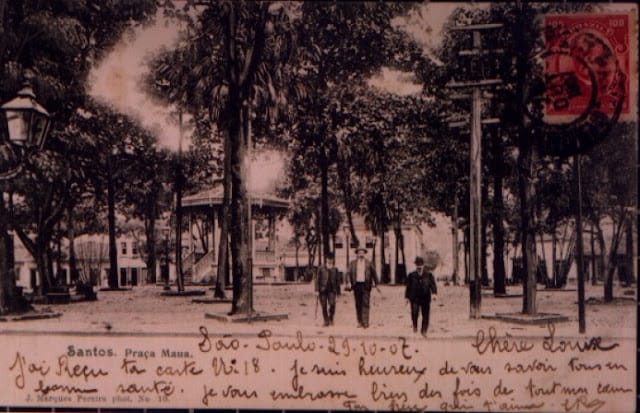 100 100
Santos. Praça Maua.
São-Paulo-29-10-07. Chère Louise
J'ai Reçu ta carte N: 18. je suis heureux de vous savoir tous en
bonne santé. je vous embrasse bien des fois de tout mon cœur
J. Marques Pereira phot. No 10.
Ton frère qui t'aime